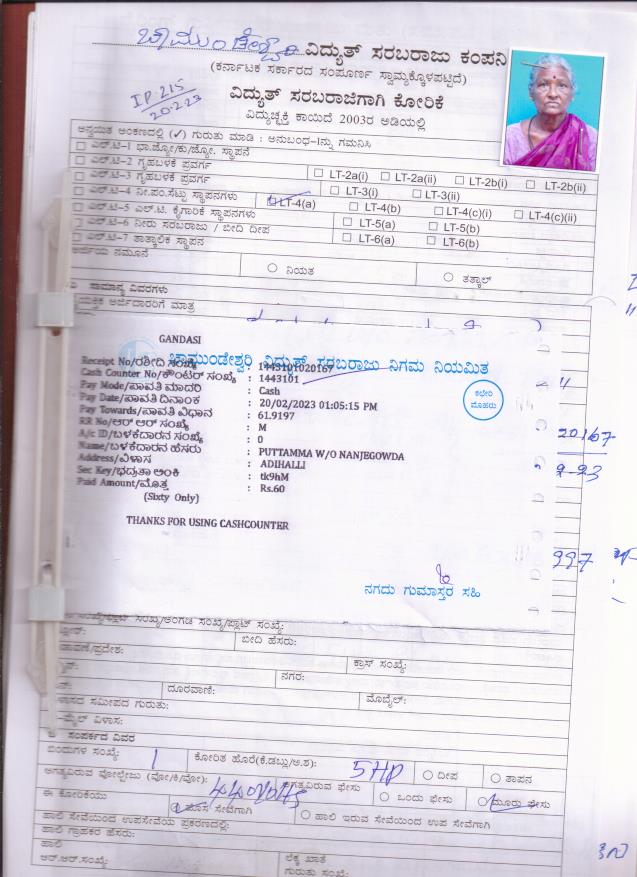 ಚಾಮುಂಡೇಶ್ವರಿ ವಿದ್ಯುತ್ ಸರಬರಾಜು ಕಂಪನಿ
(ಕರ್ನಾಟಕ ಸರ್ಕಾರದ ಸಂಪೂರ್ಣ ಸ್ವಾಮ್ಯಕ್ಕೊಳಪಟ್ಟಿದೆ)
IP.215
20.2.23
ವಿದ್ಯುತ್ ಸರಬರಾಜಿಗಾಗಿ ಕೋರಿಕೆ
ವಿದ್ಯುಚ್ಛಕ್ತಿ ಕಾಯಿದೆ 2003ರ ಅಡಿಯಲ್ಲಿ
ಅನ್ವಯಿತ ಅಂಕಣದಲ್ಲಿ (✓) ಗುರುತು ಮಾಡಿ : ಅನುಬಂಧ-Iನ್ನು ಗಮನಿಸಿ
ಎಲ್.ಟಿ-1 ಭಾ.ಜ್ಯೋ/ಕು/ಜ್ಯೋ. ಸ್ಥಾಪನೆ
ಎಲ್.ಟಿ-2 ಗೃಹಬಳಕೆ ಪ್ರವರ್ಗ LT-2a(i) LT-2a(ii) LT-2b(i) LT-2b(ii)
ಎಲ್.ಟಿ-3 ಗೃಹಬಳಕೆ ಪ್ರವರ್ಗ LT-3(i) LT-3(ii)
ಎಲ್.ಟಿ-4 ನೀ.ಪಂ.ಸೆಟ್ಟು ಸ್ಥಾಪನಗಳು LT-4(a) LT-4(b) LT-4(c)(i) LT-4(c)(ii)
ಎಲ್.ಟಿ-5 ಎಲ್.ಟಿ. ಕೈಗಾರಿಕೆ ಸ್ಥಾಪನಗಳು LT-5(a) LT-5(b)
ಎಲ್.ಟಿ-6 ನೀರು ಸರಬರಾಜು / ಬೀದಿ ದೀಪ LT-6(a) LT-6(b)
ಎಲ್.ಟಿ-7 ತಾತ್ಕಾಲಿಕ ಸ್ಥಾಪನ
ನಮೂನೆ ನಿಯತ ತತ್ಕಾಲ್
ಸಾಮಾನ್ಯ ವಿವರಗಳು
ಅರ್ಜಿದಾರರಿಗೆ ಮಾತ್ರ
GANDASI
ಚಾಮುಂಡೇಶ್ವರಿ ವಿದ್ಯುತ್ ಸರಬರಾಜು ನಿಗಮ ನಿಯಮಿತ
Receipt No/ರಶೀದಿ ಸಂಖ್ಯೆ : 1443101020167
Cash Counter No/ಕೌಂಟರ್ ಸಂಖ್ಯೆ : 1443101
Pay Mode/ಪಾವತಿ ಮಾದರಿ : Cash
Pay Date/ಪಾವತಿ ದಿನಾಂಕ : 20/02/2023 01:05:15 PM
Pay Towards/ಪಾವತಿ ವಿಧಾನ : 61.9197
RR No/ಆರ್ ಆರ್ ಸಂಖ್ಯೆ : M
A/c ID/ಬಳಕೆದಾರನ ಸಂಖ್ಯೆ : 0
Name/ಬಳಕೆದಾರನ ಹೆಸರು : PUTTAMMA W/O NANJEGOWDA
Address/ವಿಳಾಸ : ADIHALLI
Sec Key/ಭದ್ರತಾ ಅಂಕಿ : tk9hM
Paid Amount/ಮೊತ್ತ : Rs.60
(Sixty Only)
ಕಛೇರಿ
ಮೊಹರು
20167
2-23
THANKS FOR USING CASHCOUNTER
997
ನಗದು ಗುಮಾಸ್ತರ ಸಹಿ
ಸಂಖ್ಯೆ/ಅಂಗಡಿ ಸಂಖ್ಯೆ/ಪ್ಲಾಟ್ ಸಂಖ್ಯೆ:
ಬೀದಿ ಹೆಸರು:
ಕ್ರಾಸ್ ಸಂಖ್ಯೆ:
ನಗರ:
ದೂರವಾಣಿ: ಮೊಬೈಲ್:
ಸಮೀಪದ ಗುರುತು:
ವಿಳಾಸ:
ಸಂಪರ್ಕದ ವಿವರ
ಬಿಂದುಗಳ ಸಂಖ್ಯೆ: 1 ಕೋರಿತ ಹೊರೆ(ಕೆ.ಡಬ್ಲು/ಅ.ಶ): 5HP ದೀಪ ತಾಪನ
ಅಗತ್ಯವಿರುವ ವೋಲ್ಟೇಜು (ವೋ/ಕಿ/ವೋ): 440 Volts ಅಗತ್ಯವಿರುವ ಫೇಸು ಒಂದು ಫೇಸು ಮೂರು ಫೇಸು
ಈ ಕೋರಿಕೆಯು ಹೊಸ ಸೇವೆಗಾಗಿ ಹಾಲಿ ಇರುವ ಸೇವೆಯಿಂದ ಉಪ ಸೇವೆಗಾಗಿ
ಹಾಲಿ ಸೇವೆಯಿಂದ ಉಪಸೇವೆಯ ಪ್ರಕರಣದಲ್ಲಿ:
ಹಾಲಿ ಗ್ರಾಹಕರ ಹೆಸರು:
ಹಾಲಿ
ಆರ್.ಆರ್.ಸಂಖ್ಯೆ: ಲೆಕ್ಕ ಖಾತೆ
ಗುರುತು ಸಂಖ್ಯೆ: